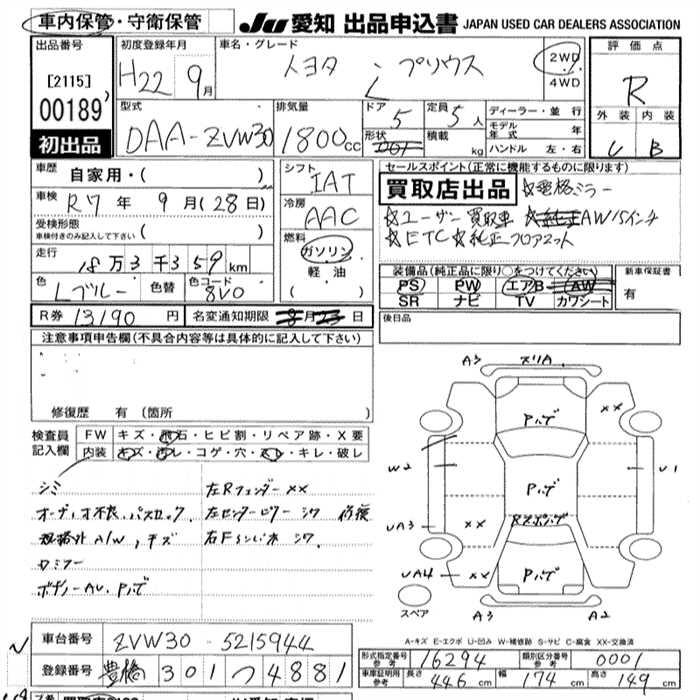 車内保管・守衛保管
JU 愛知 出品申込書 JAPAN USED CAR DEALERS ASSOCIATION
出品番号 初度登録年月 車名・グレード 評価点
[2115] 00189
初出品
H22 9月 トヨタ プリウス L 2WD 4WD R
外装 内装
C B
型式 排気量 ドア 定員 ディーラー・並行
DAA-ZVW30 1800cc 5 5人
形状 積載 kg
モデル年式 年
ハンドル 左・右
車歴 自家用・( )
車検 R7年 9月(28日)
受検形態
車検付きのみ記入して下さい ( )
走行 18万3千359km
色 Lブルー 色替 色コード 8V0
シフト IAT
冷房 AAC
燃料 ガソリン
軽油
( )
セールスポイント(正常に機能するものに限ります)
買取店出品 ☆電格ミラー
☆ユーザー買取車 ☆純正AW15インチ
☆ETC ☆純正フロアマット
装備品(純正品に限り○をつけてください) 新車保証書
PS PW エアB AW 有
SR ナビ TV カワシート
R券 13190円 名変通知期限 8月23日
後日品
注意事項申告欄(不具合内容等は具体的に記入して下さい)
修復歴 有(箇所 )
検査員記入欄
FW キズ・飛石・ヒビ割・リペア跡・X要
内装 キズ・汚レ・コゲ・穴・スレ・キレ・破レ
シミ 左Rフェンダーxx
オーディオ不良、パスロック 左センターピラーシワ 修復
規格外A/W, キズ
Wミラー
ボディーAU、Pハゲ
A3 スリA
xx
Pハゲ
W2 U1
Pハゲ
UA3 xx
Rスポハゲ
UA4 xx Pハゲ
スペア A3 A2
A-キズ E-エクボ U-凹み W-補修跡 S-サビ C-腐食 XX-交換済
車台番号 ZVW30-5215944
登録番号 豊橋 301 つ 4881
形式指定番号 参考 16294 類別区分番号 参考 0001
車庫証明用 参考 長さ 446cm 幅 174cm 高さ 149cm